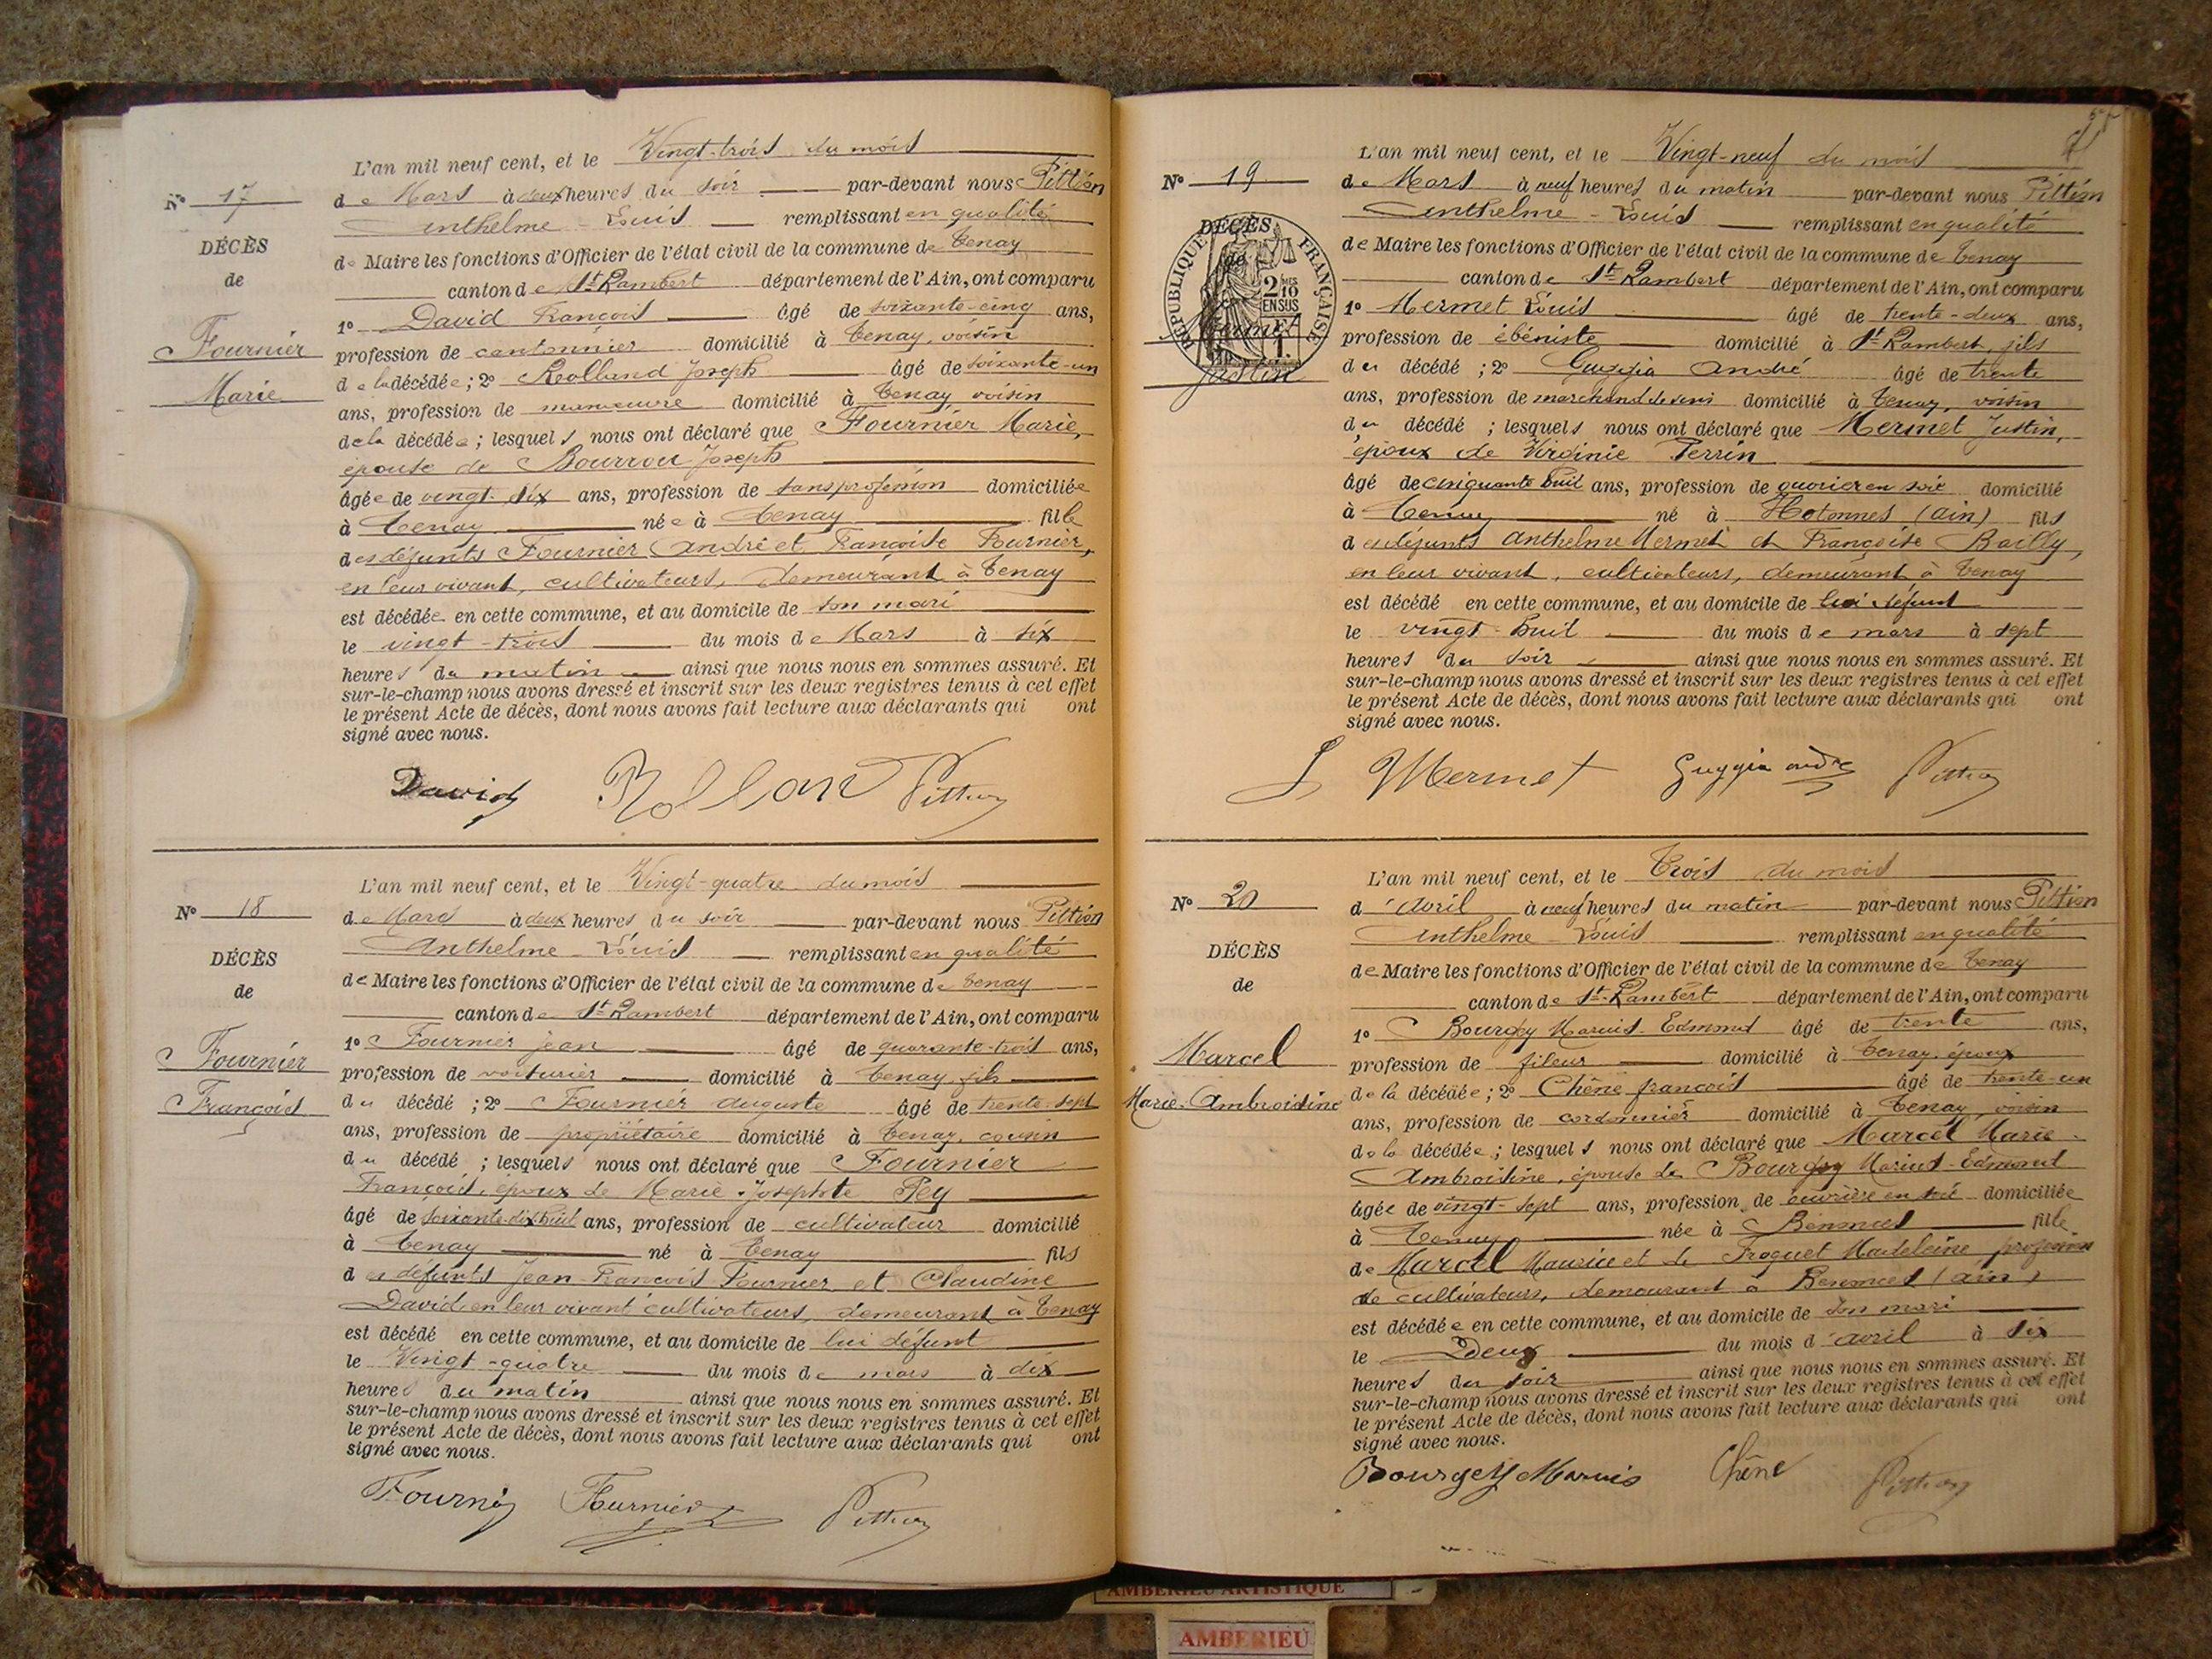 L'an mil neuf cent, et le Vingt-trois du mois
N° 17
de Mars à deux heures du soir par-devant nous Pittion
Anthelme - Louis remplissant en qualité
DÉCÈS
de Maire les fonctions d'Officier de l'état civil de la commune de Tenay
de
canton de St Rambert département de l'Ain, ont comparu
1° David François âgé de soixante-cinq ans,
Fournier
profession de cantonnier domicilié à Tenay, voisin
de la décédée ; 2° Rolland Joseph âgé de soixante-un
Marie
ans, profession de manœuvre domicilié à Tenay, voisin
de la décédée ; lesquels nous ont déclaré que Fournier Marie,
épouse de Bourrou Joseph
âgée de vingt-six ans, profession de sans profession domiciliée
à Tenay née à Tenay fille
des défunts Fournier André et Françoise Fournier,
en leur vivant, cultivateurs, demeurant à Tenay
est décédée en cette commune, et au domicile de son mari
le vingt-trois du mois de Mars à six
heures du matin ainsi que nous nous en sommes assuré. Et
sur-le-champ nous avons dressé et inscrit sur les deux registres tenus à cet effet
le présent Acte de décès, dont nous avons fait lecture aux déclarants qui ont
signé avec nous.
David Rollan Pittion
L'an mil neuf cent, et le Vingt-quatre du mois
N° 18
de Mars à deux heures du soir par-devant nous Pittion
Anthelme - Louis remplissant en qualité
DÉCÈS
de Maire les fonctions d'Officier de l'état civil de la commune de Tenay
de
canton de St Rambert département de l'Ain, ont comparu
1° Fournier Jean âgé de quarante-trois ans,
Fournier
profession de voiturier domicilié à Tenay, fils
François
du décédé ; 2° Fournier Auguste âgé de trente-sept
ans, profession de propriétaire domicilié à Tenay, cousin
du décédé ; lesquels nous ont déclaré que Fournier
François, époux de Marie-Josephte Rey
âgé de soixante-dix huit ans, profession de cultivateur domicilié
à Tenay né à Tenay fils
des défunts Jean-François Fournier et Claudine
David en leur vivant cultivateurs, demeurant à Tenay
est décédé en cette commune, et au domicile de lui défunt
le Vingt-quatre du mois de mars à dix
heures du matin ainsi que nous nous en sommes assuré. Et
sur-le-champ nous avons dressé et inscrit sur les deux registres tenus à cet effet
le présent Acte de décès, dont nous avons fait lecture aux déclarants qui ont
signé avec nous.
Fournier Fournier Pittion
L'an mil neuf cent, et le Vingt-neuf du mois
N° 19
de Mars à neuf heures du matin par-devant nous Pittion
Anthelme - Louis remplissant en qualité
DÉCÈS
de Maire les fonctions d'Officier de l'état civil de la commune de Tenay
de
RÉPUBLIQUE FRANÇAISE
2 MES 10 EN SUS
1 F
canton de St Rambert département de l'Ain, ont comparu
1° Mermet Louis âgé de trente-deux ans,
Mermet
profession de ébéniste domicilié à St Rambert, fils
Justin
du décédé ; 2° Guggia André âgé de trente
ans, profession de marchand de vins domicilié à Tenay, voisin
du décédé ; lesquels nous ont déclaré que Mermet Justin,
époux de Virginie Perrin
âgé de cinquante huit ans, profession de ouvrier en soie domicilié
à Tenay né à Hotonnes (Ain) fils
des défunts Anthelme Mermet et Françoise Bailly,
en leur vivant, cultivateurs, demeurant à Tenay
est décédé en cette commune, et au domicile de lui défunt
le vingt-huit du mois de mars à sept
heures du soir ainsi que nous nous en sommes assuré. Et
sur-le-champ nous avons dressé et inscrit sur les deux registres tenus à cet effet
le présent Acte de décès, dont nous avons fait lecture aux déclarants qui ont
signé avec nous.
L Mermet Guggia andre Pittion
L'an mil neuf cent, et le Trois du mois
N° 20
d'Avril à neuf heures du matin par-devant nous Pittion
Anthelme - Louis remplissant en qualité
DÉCÈS
de Maire les fonctions d'Officier de l'état civil de la commune de Tenay
de
canton de St-Rambert département de l'Ain, ont comparu
1° Bourgey Marius-Edmond âgé de trente ans,
Marcel
profession de fileur domicilié à Tenay, époux
Marie-Ambroisine
de la décédée ; 2° Chêne François âgé de trente-un
ans, profession de cordonnier domicilié à Tenay, voisin
de la décédée ; lesquels nous ont déclaré que Marcel Marie
Ambroisine, épouse de Bourgey Marius-Edmond
âgée de vingt-sept ans, profession de ouvrière en soie domiciliée
à Tenay née à Bénonces fille
de Marcel Maurice et de Froquet Madeleine profession
de cultivateurs, demeurant à Benonces (Ain)
est décédée en cette commune, et au domicile de son mari
le Deux du mois d'avril à six
heures du soir ainsi que nous nous en sommes assuré. Et
sur-le-champ nous avons dressé et inscrit sur les deux registres tenus à cet effet
le présent Acte de décès, dont nous avons fait lecture aux déclarants qui ont
signé avec nous.
Bourgey Marius Chêne Pittion
AMBERIEU ARTISTIQUE
AMBERIEU